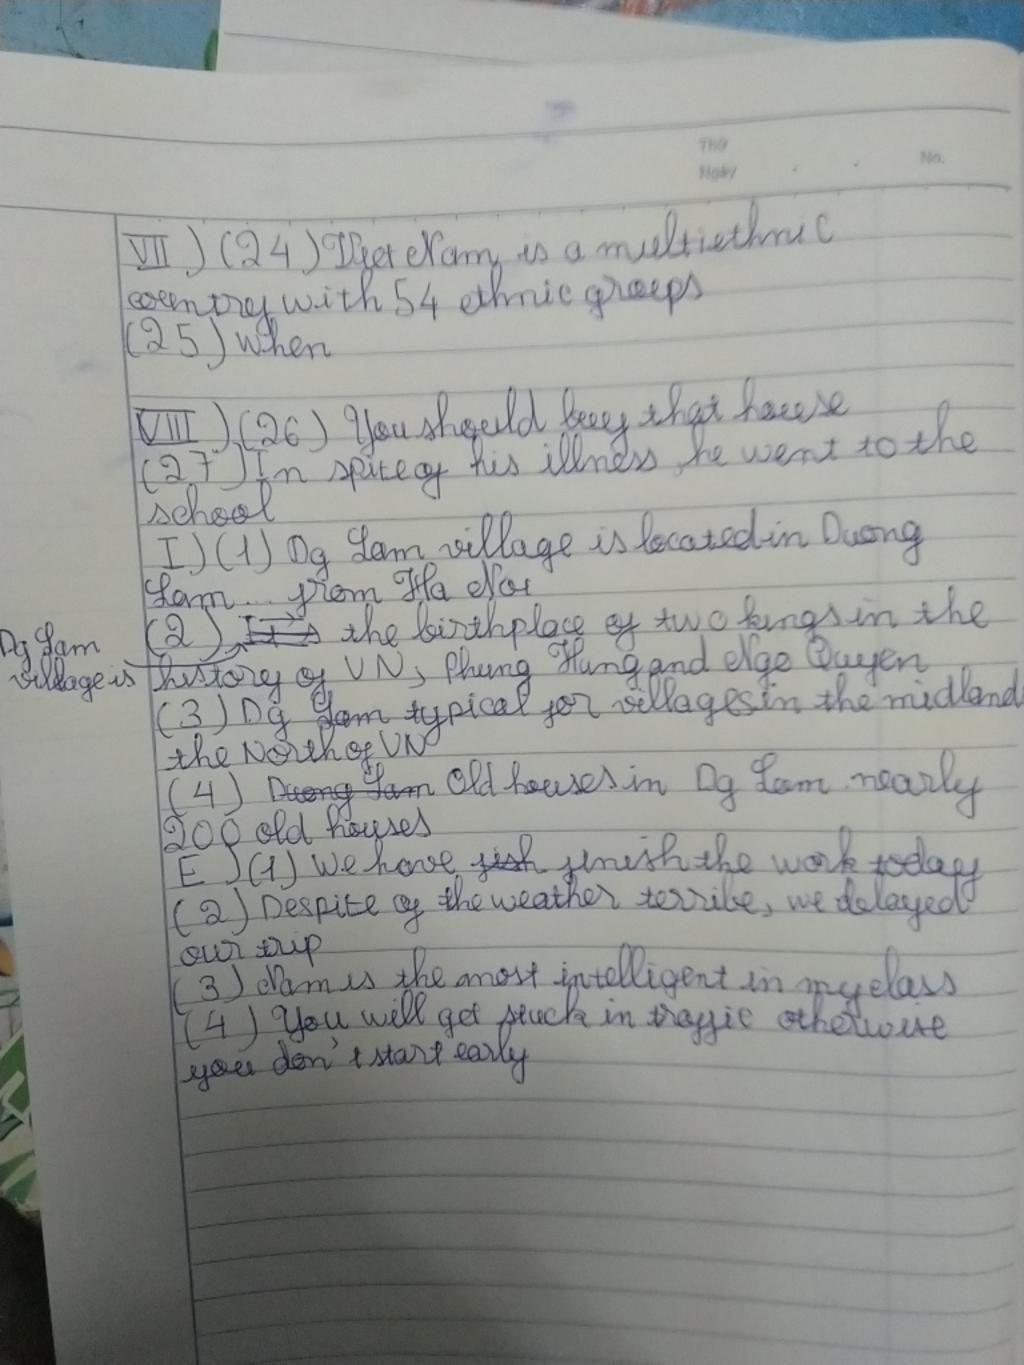 Thứ
Ngày No.
VII) (24) Viet Nam is a multiethnic
country with 54 ethnic groups
(25) When
VIII) (26) You should buy that house
(27) In spite of his illness, he went to the
school
I) (1) Dg Lam village is located in Duong
Lam... from Ha Noi
(2) It's the birthplace of two kings in the
Dg Lam
village is
history of VN, Phung Hung and Ngo Quyen
(3) Dg Lam typical for villages in the midland
the North of VN
(4) Duong Lam Old houses in Dg Lam nearly
200 old houses
E) (1) We have fish finish the work today
(2) Despite of the weather terribe, we delayed
our trip
(3) Nam is the most intelligent in my class
(4) You will get stuck in traffic otherwise
you don't start early